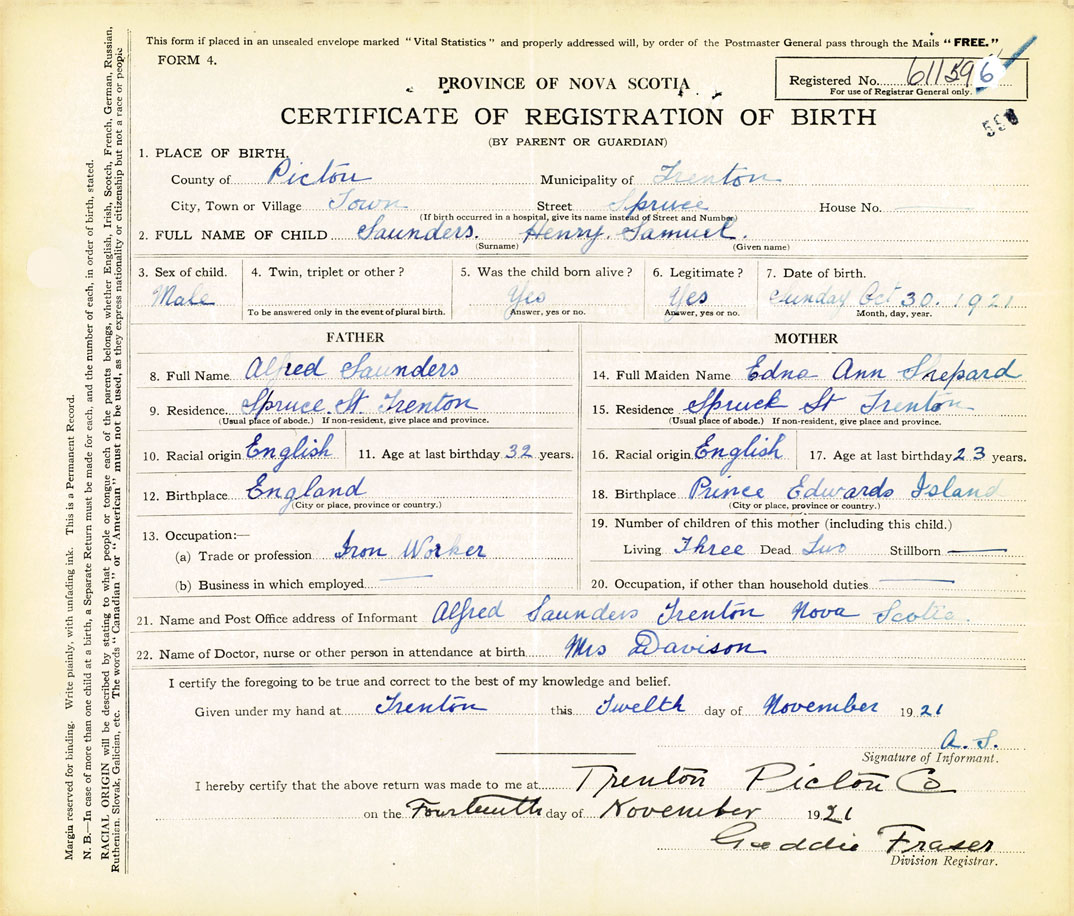 This form if placed in an unsealed envelope marked "Vital Statistics" and properly addressed will, by order of the Postmaster General pass through the Mails "FREE."
FORM 4.
Registered No. 611596
For use of Registrar General only.
PROVINCE OF NOVA SCOTIA
CERTIFICATE OF REGISTRATION OF BIRTH
(BY PARENT OR GUARDIAN)
1. PLACE OF BIRTH.
County of Picton Municipality of Trenton
City, Town or Village Town Street Spruce House No.
(If birth occurred in a hospital, give its name instead of Street and Number)
2. FULL NAME OF CHILD Saunders. Henry. Samuel.
(Surname) (Given name)
3. Sex of child. 4. Twin, triplet or other? 5. Was the child born alive? 6. Legitimate? 7. Date of birth.
Male Yes Yes Sunday Oct 30. 1921
To be answered only in the event of plural birth. Answer, yes or no. Answer, yes or no. Month, day, year.
FATHER
8. Full Name Alfred Saunders
9. Residence Spruce. St Trenton
(Usual place of abode.) If non-resident, give place and province.
10. Racial origin English 11. Age at last birthday 32 years.
12. Birthplace England
(City or place, province or country.)
13. Occupation:—
(a) Trade or profession Iron Worker
(b) Business in which employed
MOTHER
14. Full Maiden Name Edna Ann Shepard
15. Residence Spruck St Trenton
(Usual place of abode.) If non-resident, give place and province.
16. Racial origin English 17. Age at last birthday 23 years.
18. Birthplace Prince Edwards Island
(City or place, province or country.)
19. Number of children of this mother (including this child.)
Living Three Dead Two Stillborn —
20. Occupation, if other than household duties —
21. Name and Post Office address of Informant Alfred Saunders Trenton Nova Scotia.
22. Name of Doctor, nurse or other person in attendance at birth Mrs Davison
I certify the foregoing to be true and correct to the best of my knowledge and belief.
Given under my hand at Trenton this Twelth day of November 1921
A. S.
Signature of Informant.
I hereby certify that the above return was made to me at Trenton Picton Co
on the Fourteenth day of November 1921
Geddie Fraser
Division Registrar.
Margin reserved for binding. Write plainly, with unfading ink. This is a Permanent Record.
N. B.—In case of more than one child at a birth, a Separate Return must be made for each, and the number of each, in order of birth, stated.
RACIAL ORIGIN will be described by stating to what people or tongue each of the parents belongs, whether English, Irish, Scotch, French, German, Russian,
Ruthenian, Slovak, Galician, etc. The words "Canadian" or "American" must not be used, as they express nationality or citizenship but not a race or people